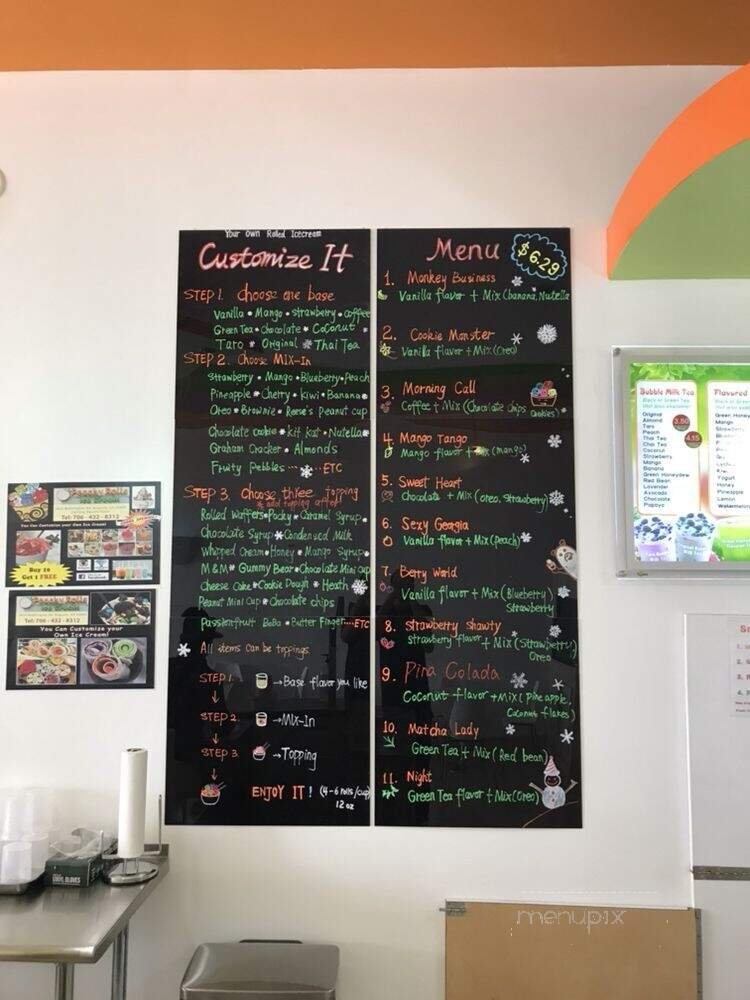 Your Own Rolled Icecream
Customize It
STEP 1. choose one base
Vanilla • Mango • strawberry • coffee
Green Tea • chocolate • Coconut
Taro • Original Thai Tea
STEP 2. Choose MIX-In
strawberry • Mango • Blueberry • Peach
Pineapple • Cherry • Kiwi • Banana
Oreo • Brownie • Reese's Peanut cup
Chocolate cookie • kit kat • Nutella
Graham Cracker • Almonds
Fruity Pebbles ......ETC
STEP 3. choose three topping
Rolled Waffers • Pocky • Caramel Syrup
Chocolate Syrup • Condensed Milk
Whipped Cream • Honey • Mango Syrup
M&M • Gummy Bear • Chocolate Mini cup
Cheese Cake • Cookie Dough • Heath
Peanut Mini Cup • Chocolate chips
Passionfruit BoBa • Butter Finger....ETC
All items can be toppings.
STEP 1. → Base flavor you like
STEP 2. → MIX-In
STEP 3. → Topping
ENJOY IT! (4-6 rolls/cup)
12 oz
Menu
$6.29
1. Monkey Business
Vanilla flavor + Mix (banana, Nutella
2. Cookie Monster
Vanilla flavor + Mix (Oreo)
3. Morning Call
Coffee + Mix (Chocolate chips
Cookies)
4. Mango Tango
Mango flavor + Mix (mango)
5. Sweet Heart
Chocolate + Mix (oreo, Strawberry)
6. Sexy Georgia
Vanilla flavor + Mix (Peach)
7. Berry World
Vanilla flavor + Mix (Blueberry)
Strawberry
8. Strawberry Shawty
strawberry flavor + Mix (Strawberry)
Oreo
9. Pina Colada
Coconut flavor + Mix (Pineapple,
Coconut flakes)
10. Matcha Lady
Green Tea + Mix (Red bean)
11. Night
Green Tea flavor + Mix (Oreo)
Bubble Milk Tea
Original
Almond
Taro
Peach
Thai Tea
Chai Tea
Coconut
Strawberry
Mango
Banana
Green Honeydew
Red Bean
Lavender
Avocado
Chocolate
Papaya
3.50
4.15
Flavored
Green
Mango
Honey
Pineapple
Lemon
Watermelon
Tel: 706-432-8312
You Can Customize your Own Ice Cream!
Buy 10
Get 1 FREE
Tel: 706-432-8312
You Can Customize your
Own Ice Cream!
menupix